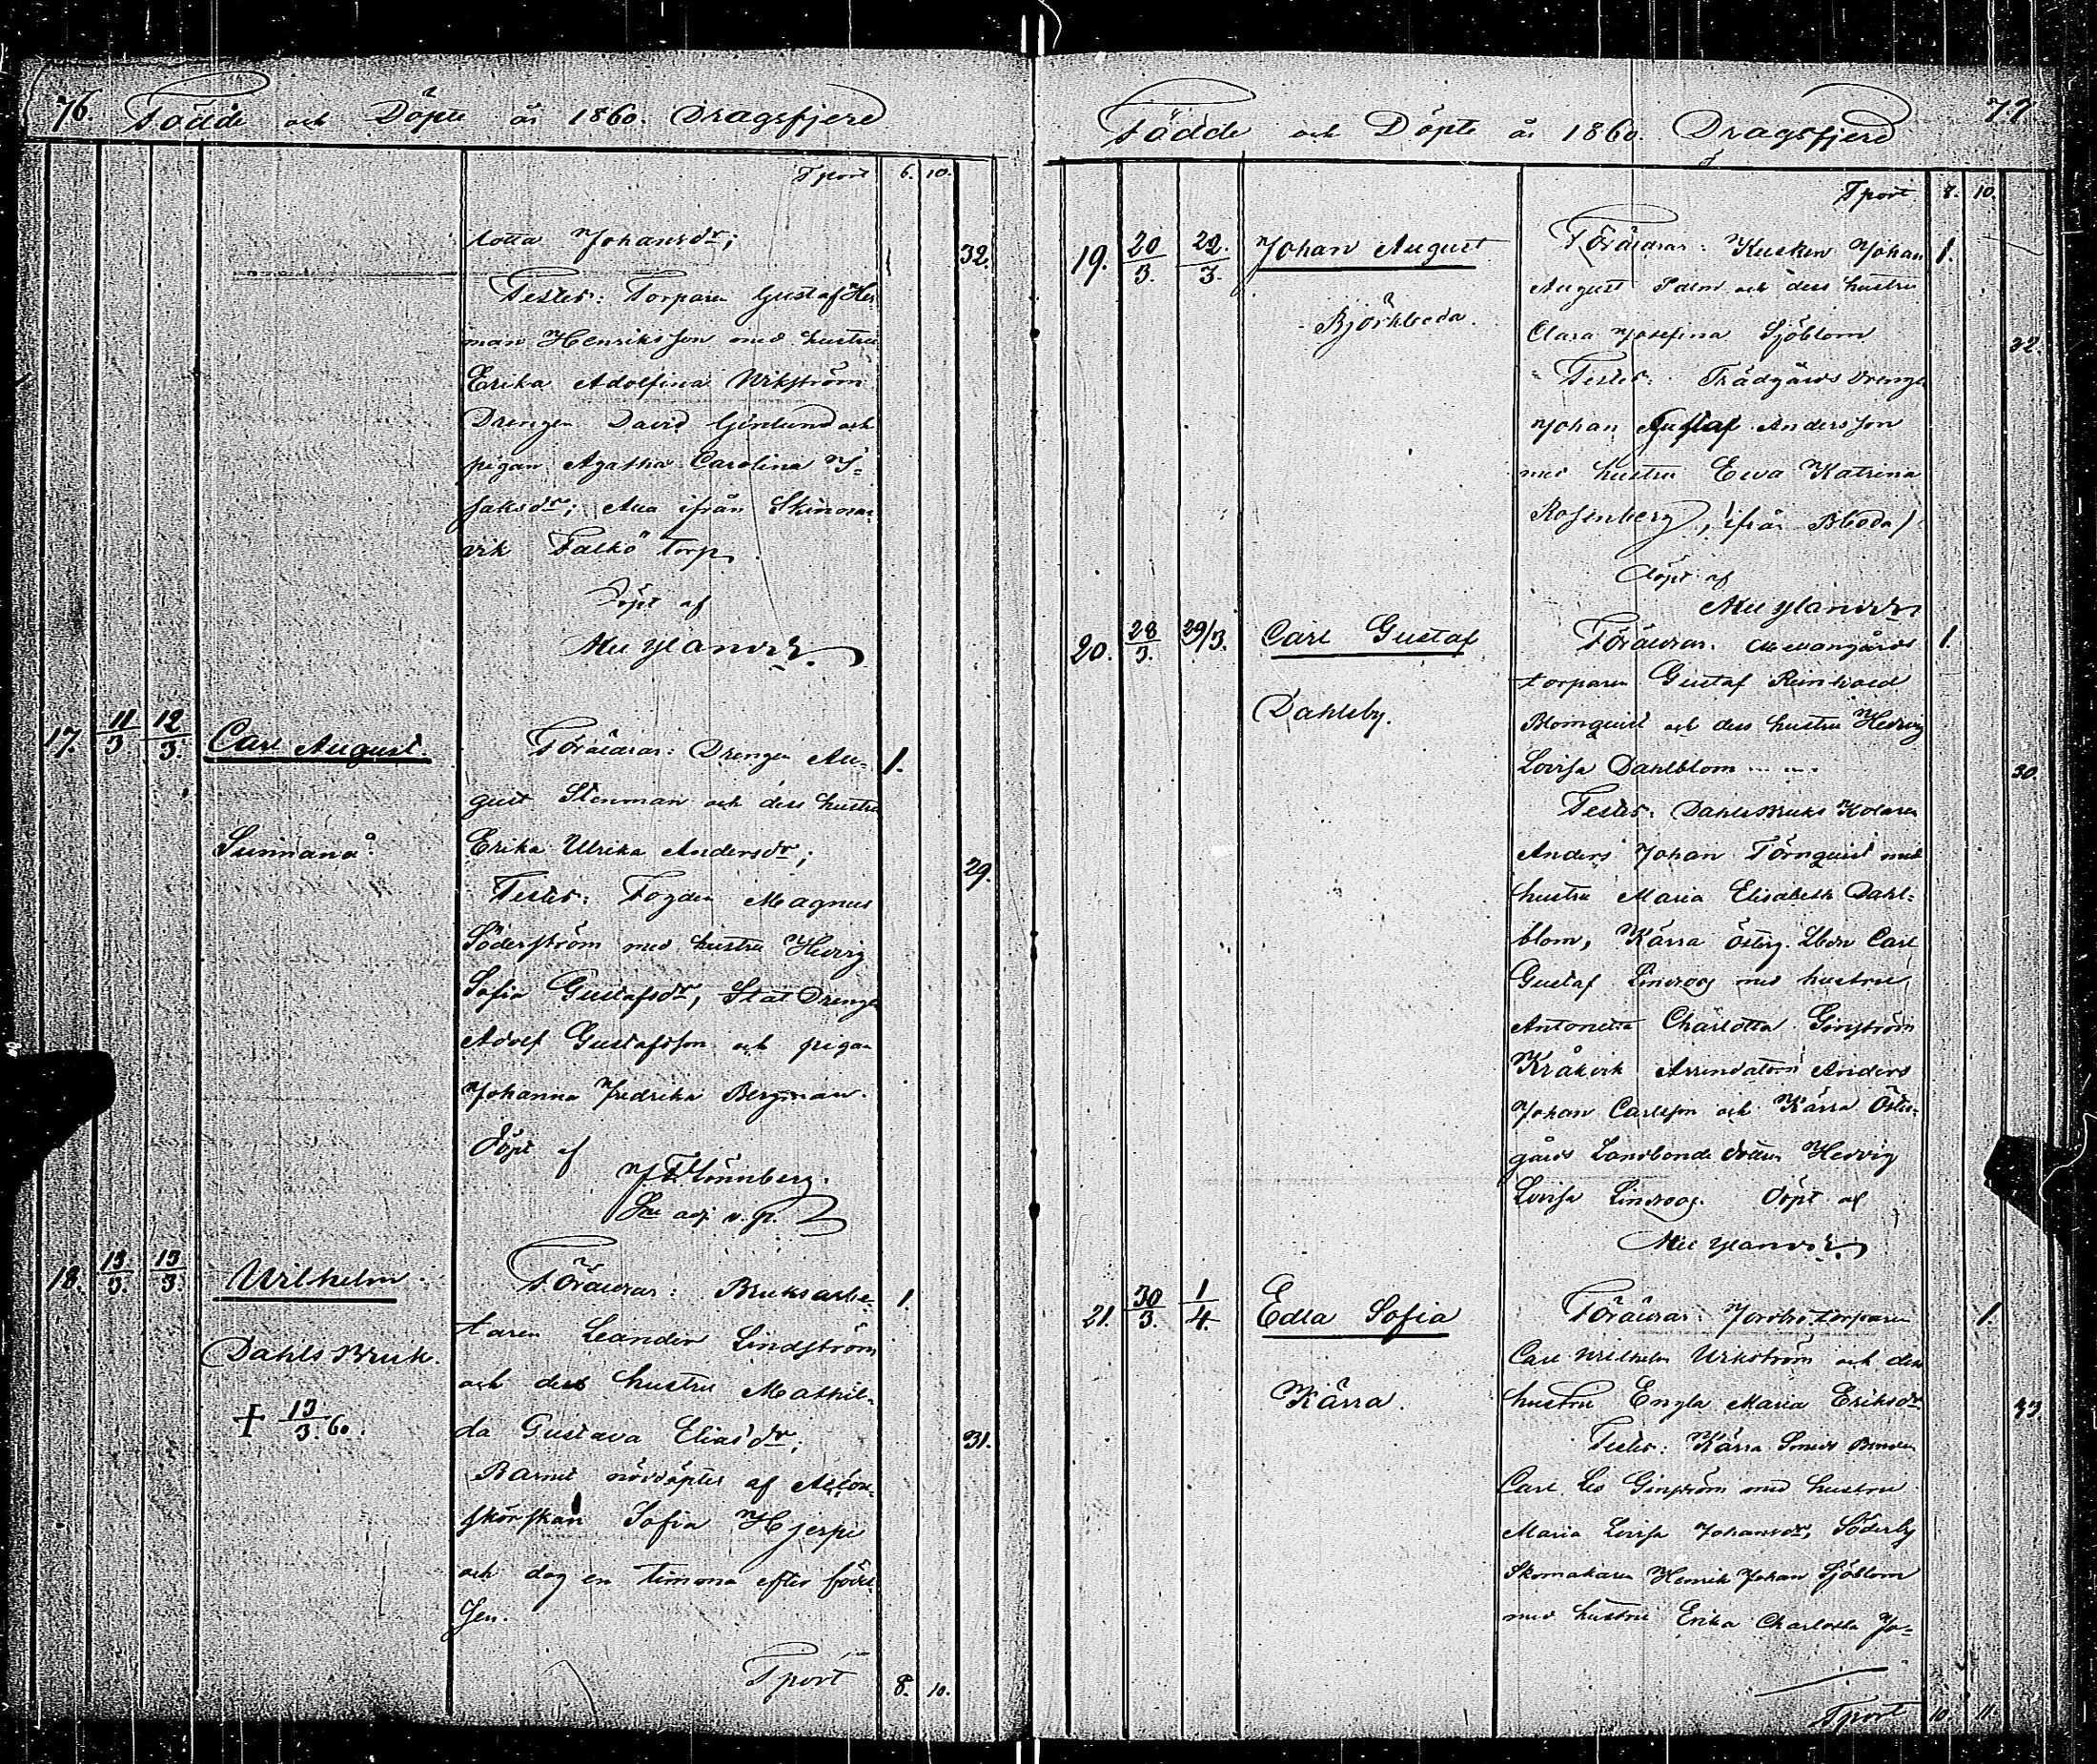 76. Födde och Döpte år 1860. Dragsfjerd
Tport 6. 10.
lotta Johansdr; 32.
Testes: Torparen Gustaf Her
man Henriksson med hustru
Erika Adolfina Wikström
Drengen David Ginlund och
pigan Agatha Carolina I=
saksdr; alla ifrån Skinnar
vik Falkö torp.
Döpt af
17. 11/3 12/3. Carl August. Föräldrar: Drengen Au- 1.
gust Stenman och dess hustru
Sunnanå. Erika Ulrika Andersdr;
29.
Testes: Fogden Magnus
Söderström med hustru Hedvig
Sofia Gustafsdr, Stat Drengen
Adolf Gustafsson och pigan
Johanna Fredrika Bergman.
Döpt af
Lönnberg.
adj. v. p.
18. 13/3. 13/3. Wilhelm. Föräldrar: Bruksarbe- 1.
taren Leander Lindström
Dahls Bruk.
och dess hustru Mathil-
† 13/3. 60.
da Gustava Eliasdr; 31.
Barnet nöddöptes af
Sofia Hjerpe
och dog en timma efter födel
sen.
Tport 8. 10.
Födde och Döpte år 1860. Dragsfjerd 77.
Tport 8. 10.
19. 20/3. 22/3. Johan August Föräldrar: Kusken Johan 1.
August Palm och dess hustru
Björkboda.
Clara Josefina Sjöblom 32.
Testes: Trädgårds Drengen
Johan Gustaf Andersson
med hustru Ewa Katrina
Rosenberg, (ifrån Bboda)
Döpt af
20. 28/3. 29/3. Carl Gustaf Föräldrar. Mellangårds 1.
torparen Gustaf Reinhold
Dahlsby. Blomquist och dess hustru Hedvig
Lovisa Dahlblom 30.
Testes: Dahls Bruks Kolaren
Anders Johan Törnquist med
hustru Maria Elisabeth Dahl=
blom, Kärra Österg. Lbdn Carl
Gustaf Lindroos med hustru
Antonetta Charlotta Ginström
Kråkvik Arrendatorn Anders
Johan Carlsson och Kärra Öster-
gårds Landbonde Hedvig
Lovisa Lindroos. Döpt af
21. 30/3. 1/4. Edla Sofia Föräldrar: torparen 1.
Carl Wilhelm Wikström och dess
Kärra. hustru Engla Maria Eriksdr 33.
Testes: Kärra Smeds Bonden
Carl Leo Ginström med hustru
Maria Lovisa Johansdr, Söderby
Skomakaren Henrik Johan Sjöblom
med hustru Erika Charlotta Jo=
Tport 10. 11.